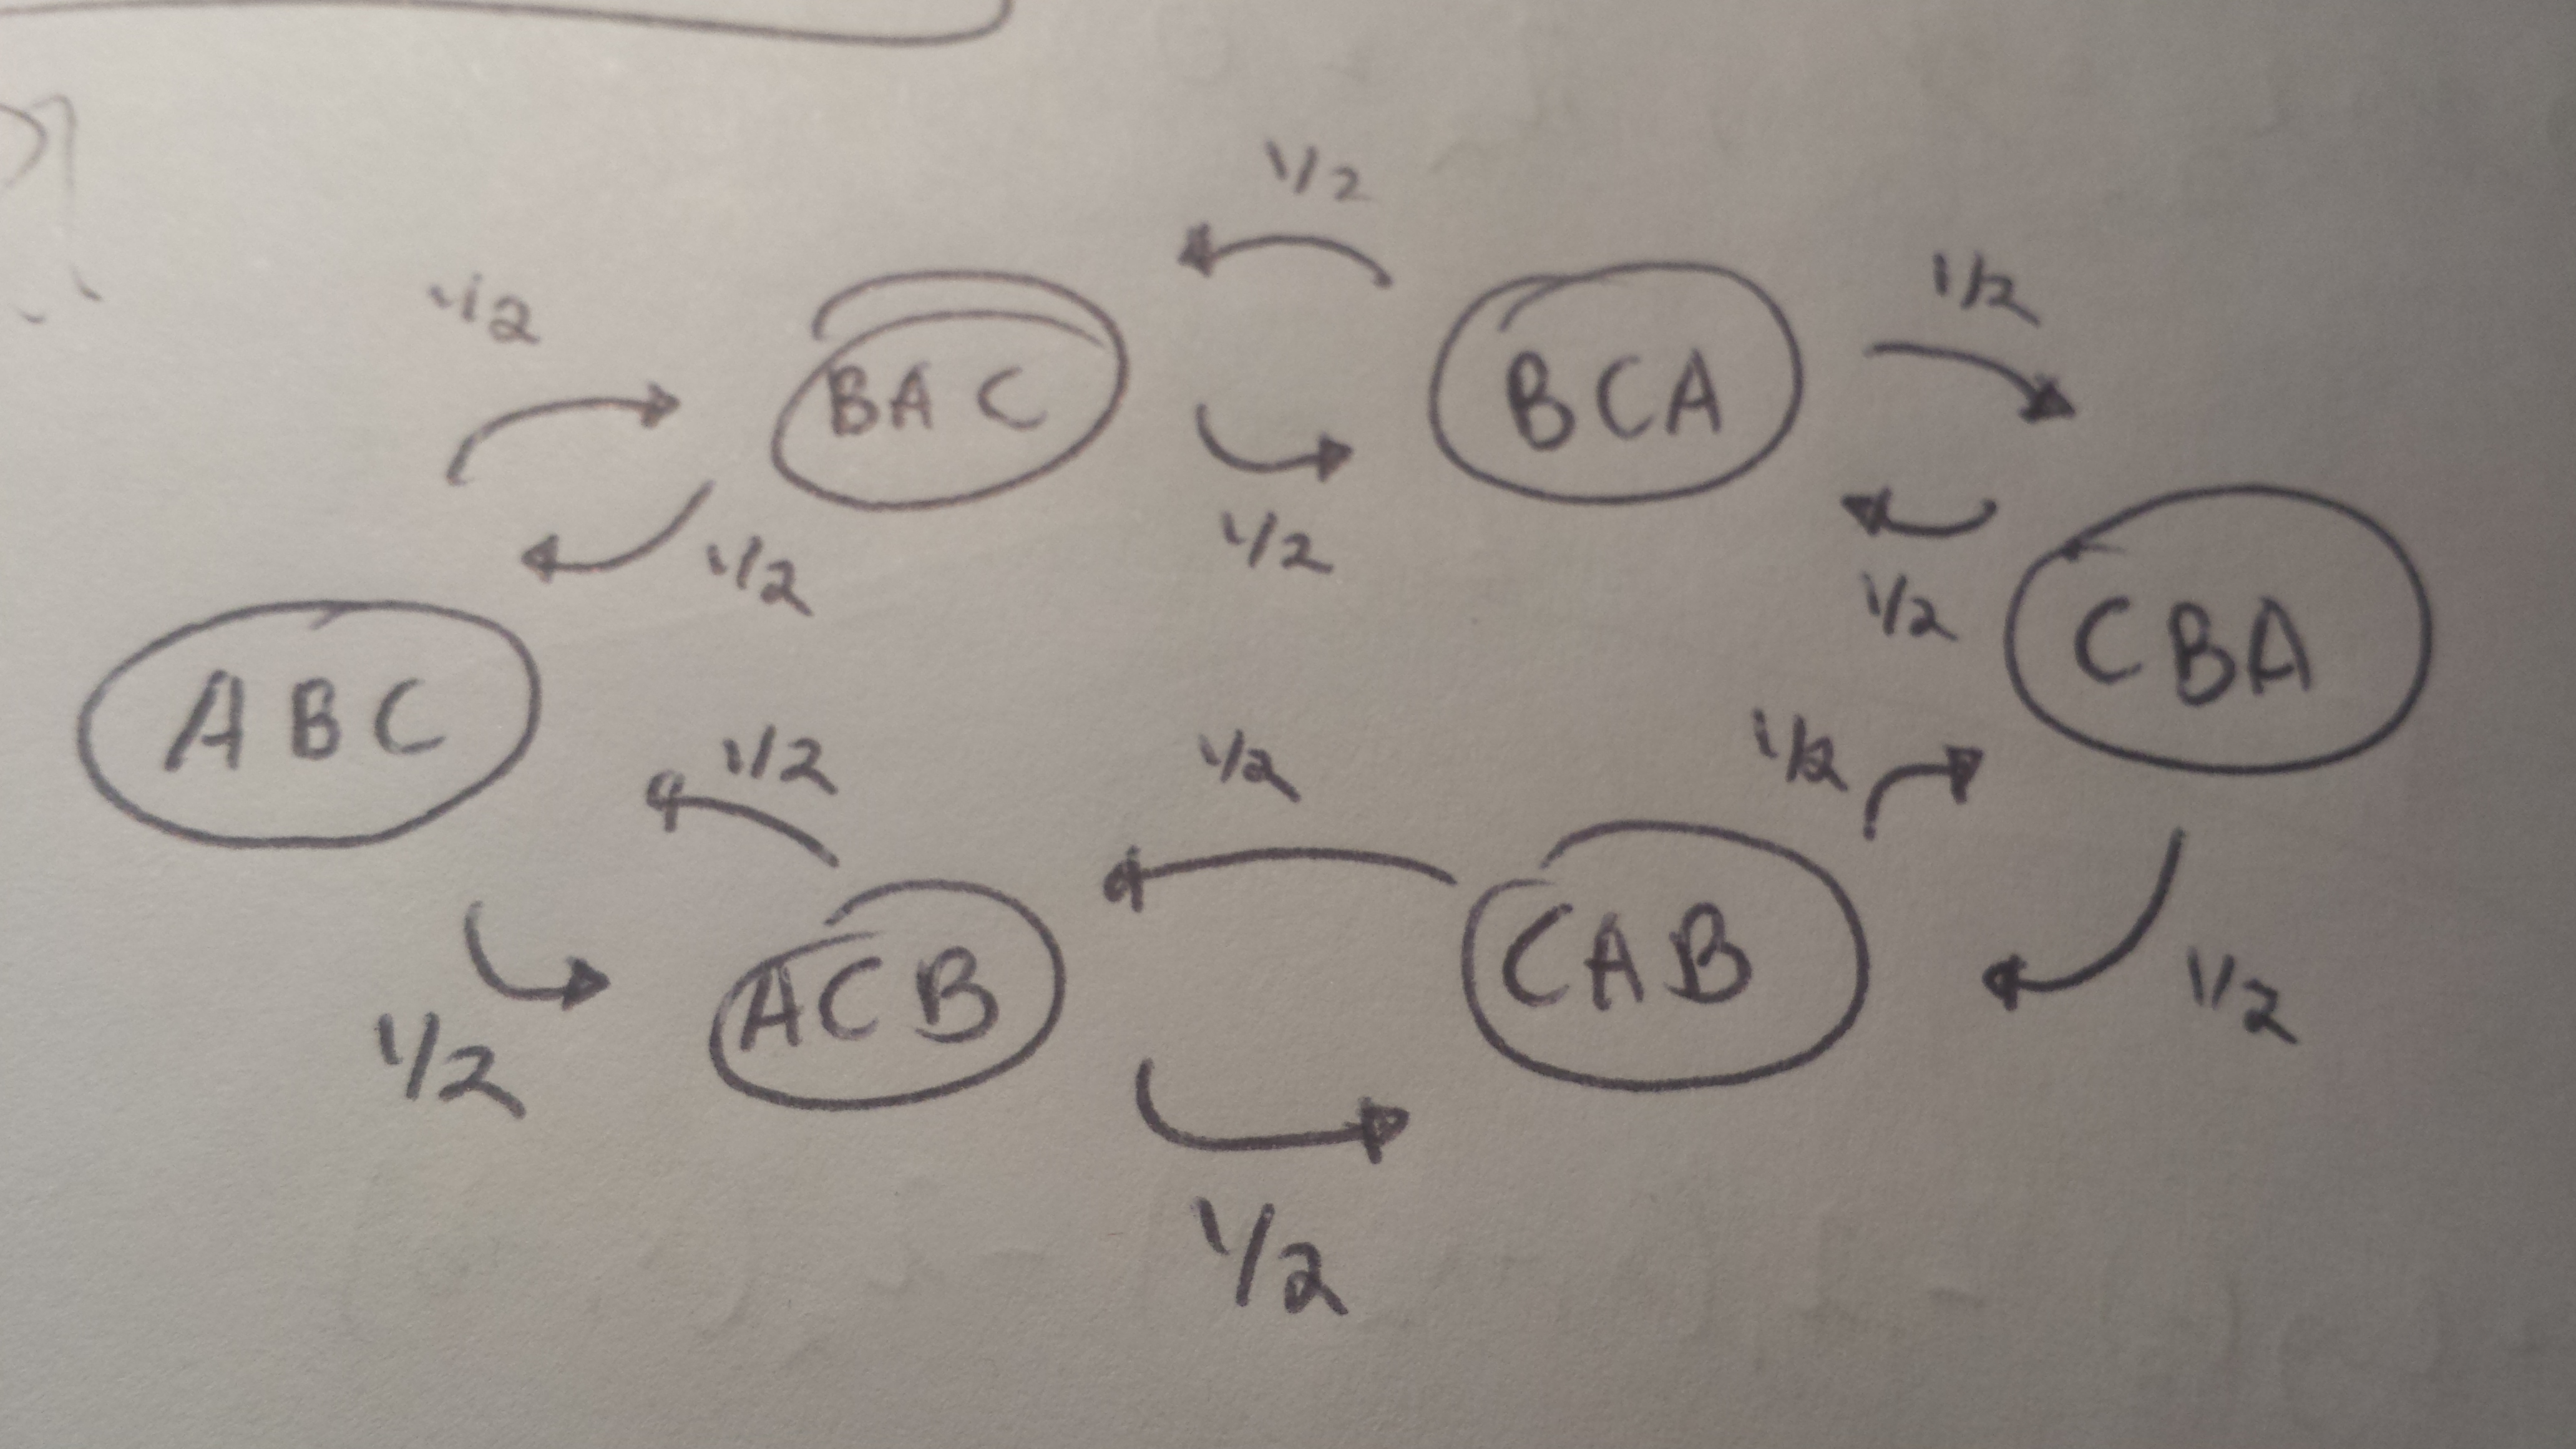 1/2
1/2
1/2
BAC
BCA
1/2
1/2
1/2
CBA
ABC
1/2
1/2
1/2
ACB
CAB
1/2
1/2
1/2